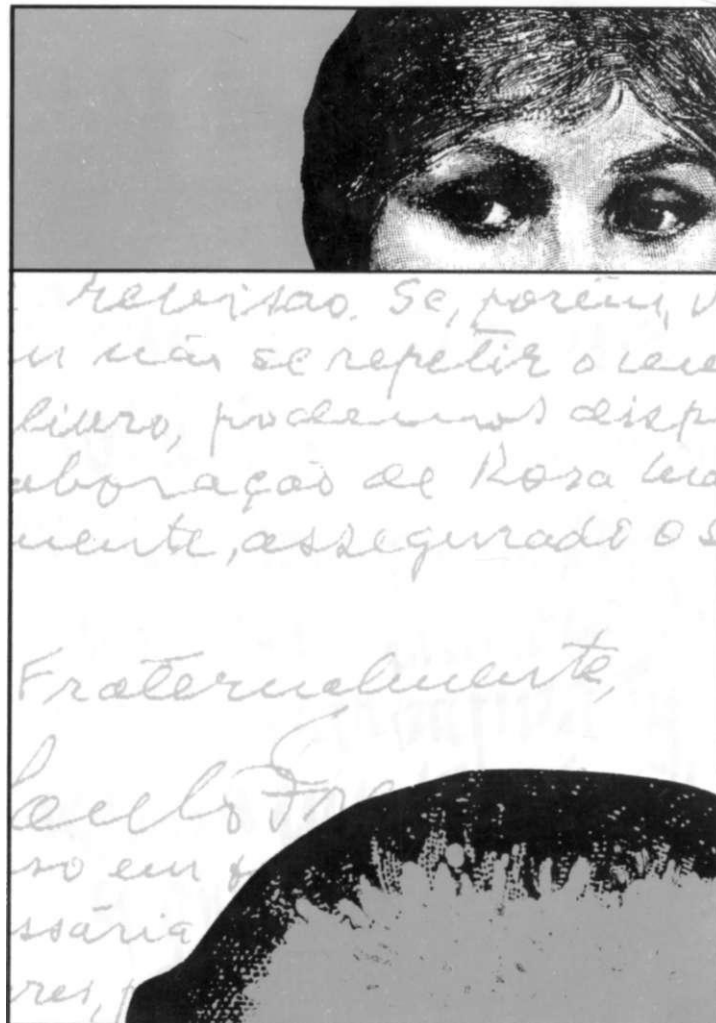 revisão. Se, porém, v
m não se repetir o
livro, podemos disp
aboração de Rosa Ma
mente, assegurado o s
Fraternalmente,
Paulo Fre
so em
ssária
res, p